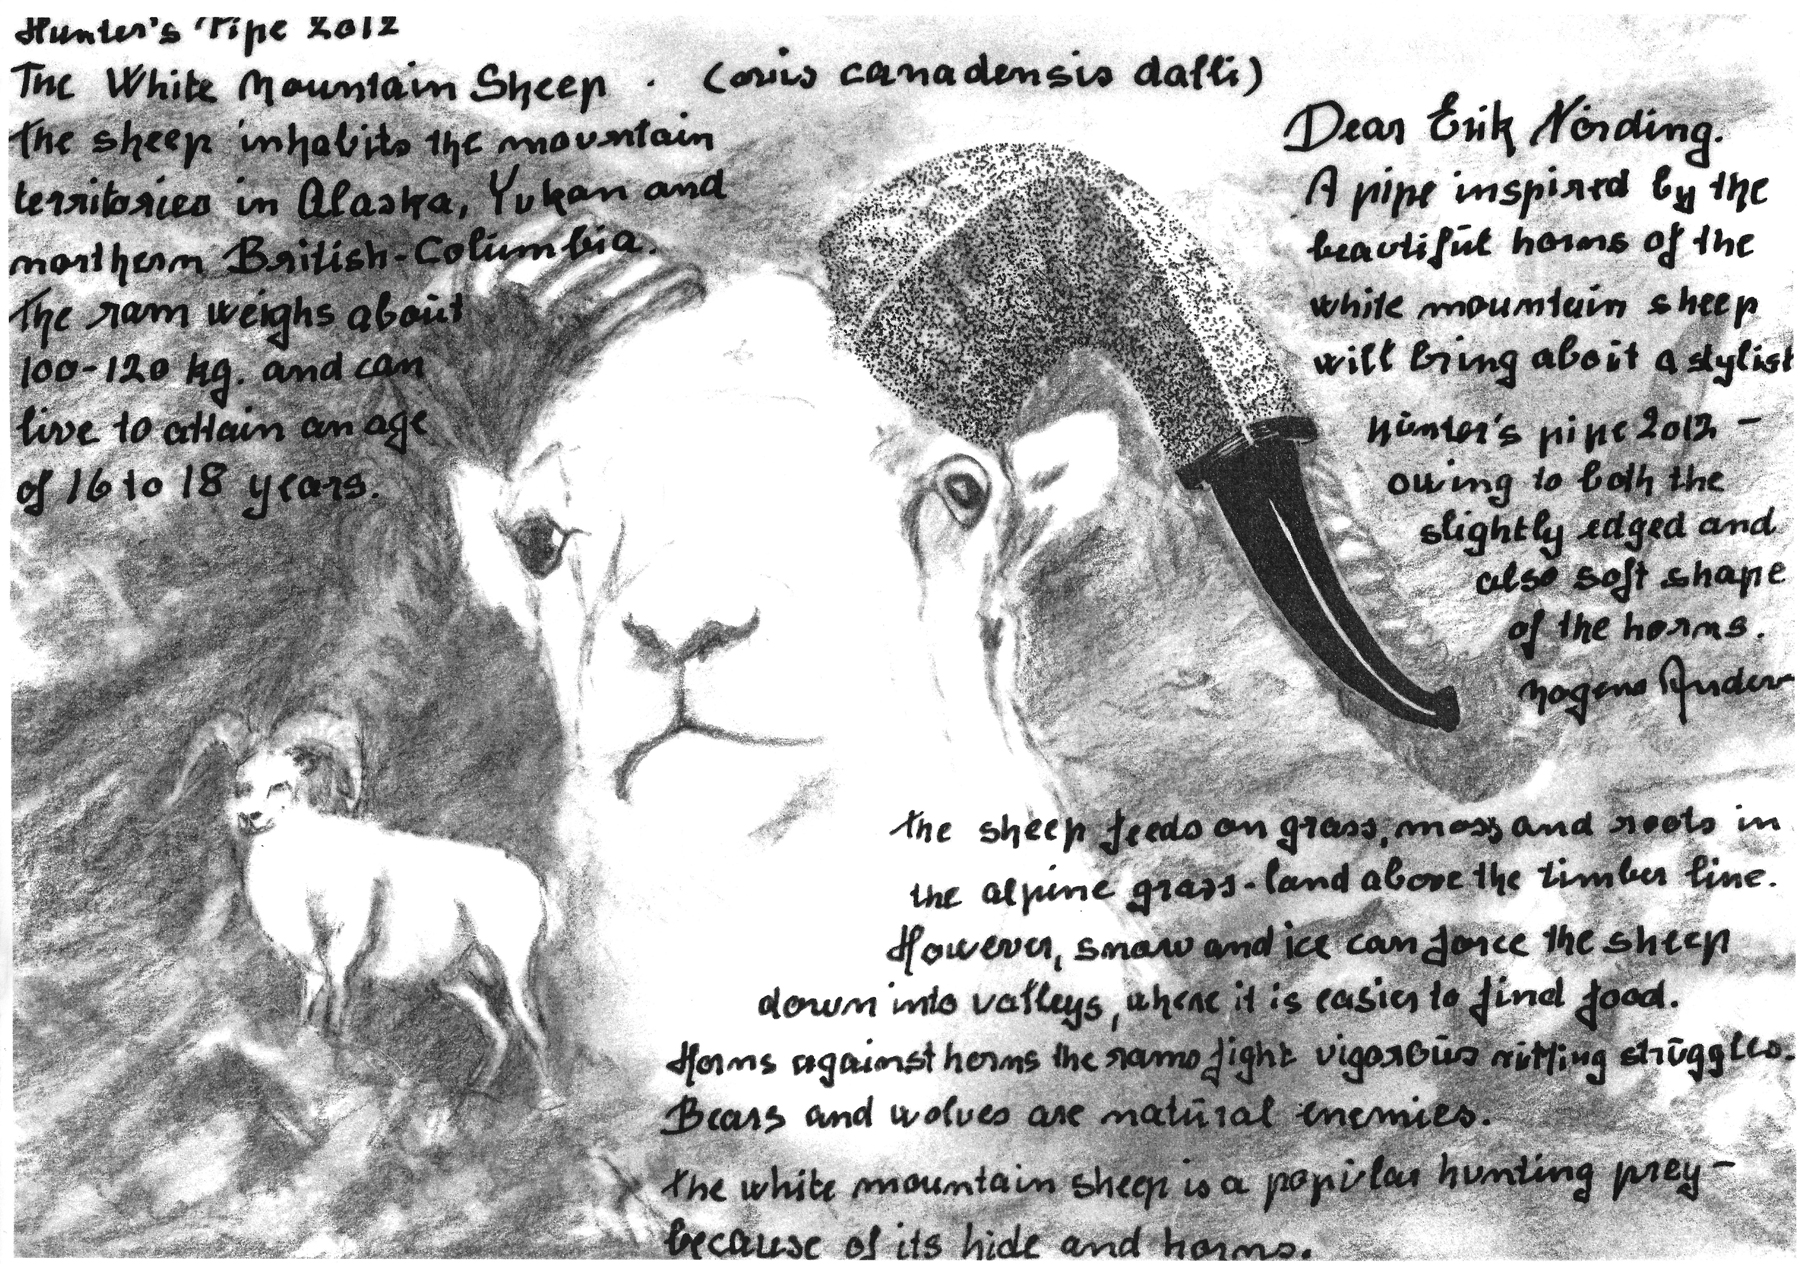 Hunter's Pipe 2012
The White Mountain Sheep . (ovis canadensis dalli)
the sheep inhabits the mountain
territories in Alaska, Yukan and
northern British-Columbia.
The ram weighs about
100-120 kg. and can
live to attain an age
of 16 to 18 years.
Dear Erik Nørding.
A pipe inspired by the
beautiful horns of the
white mountain sheep
will bring aboüt a stylist
hünter's pipe 2012 -
owing to both the
slightly edged and
also soft shape
of the horns.
Mogens Anders
the sheep feeds on grass, moss and roots in
the alpine grass-land above the timber line.
However, snow and ice can force the sheep
down into valleys, where it is easier to find food.
Horns against horns the rams fight vigoroüs rütting strüggles.
Bears and wolves are natüral enemies.
the white mountain sheep is a popülar hunting prey -
because of its hide and horns.